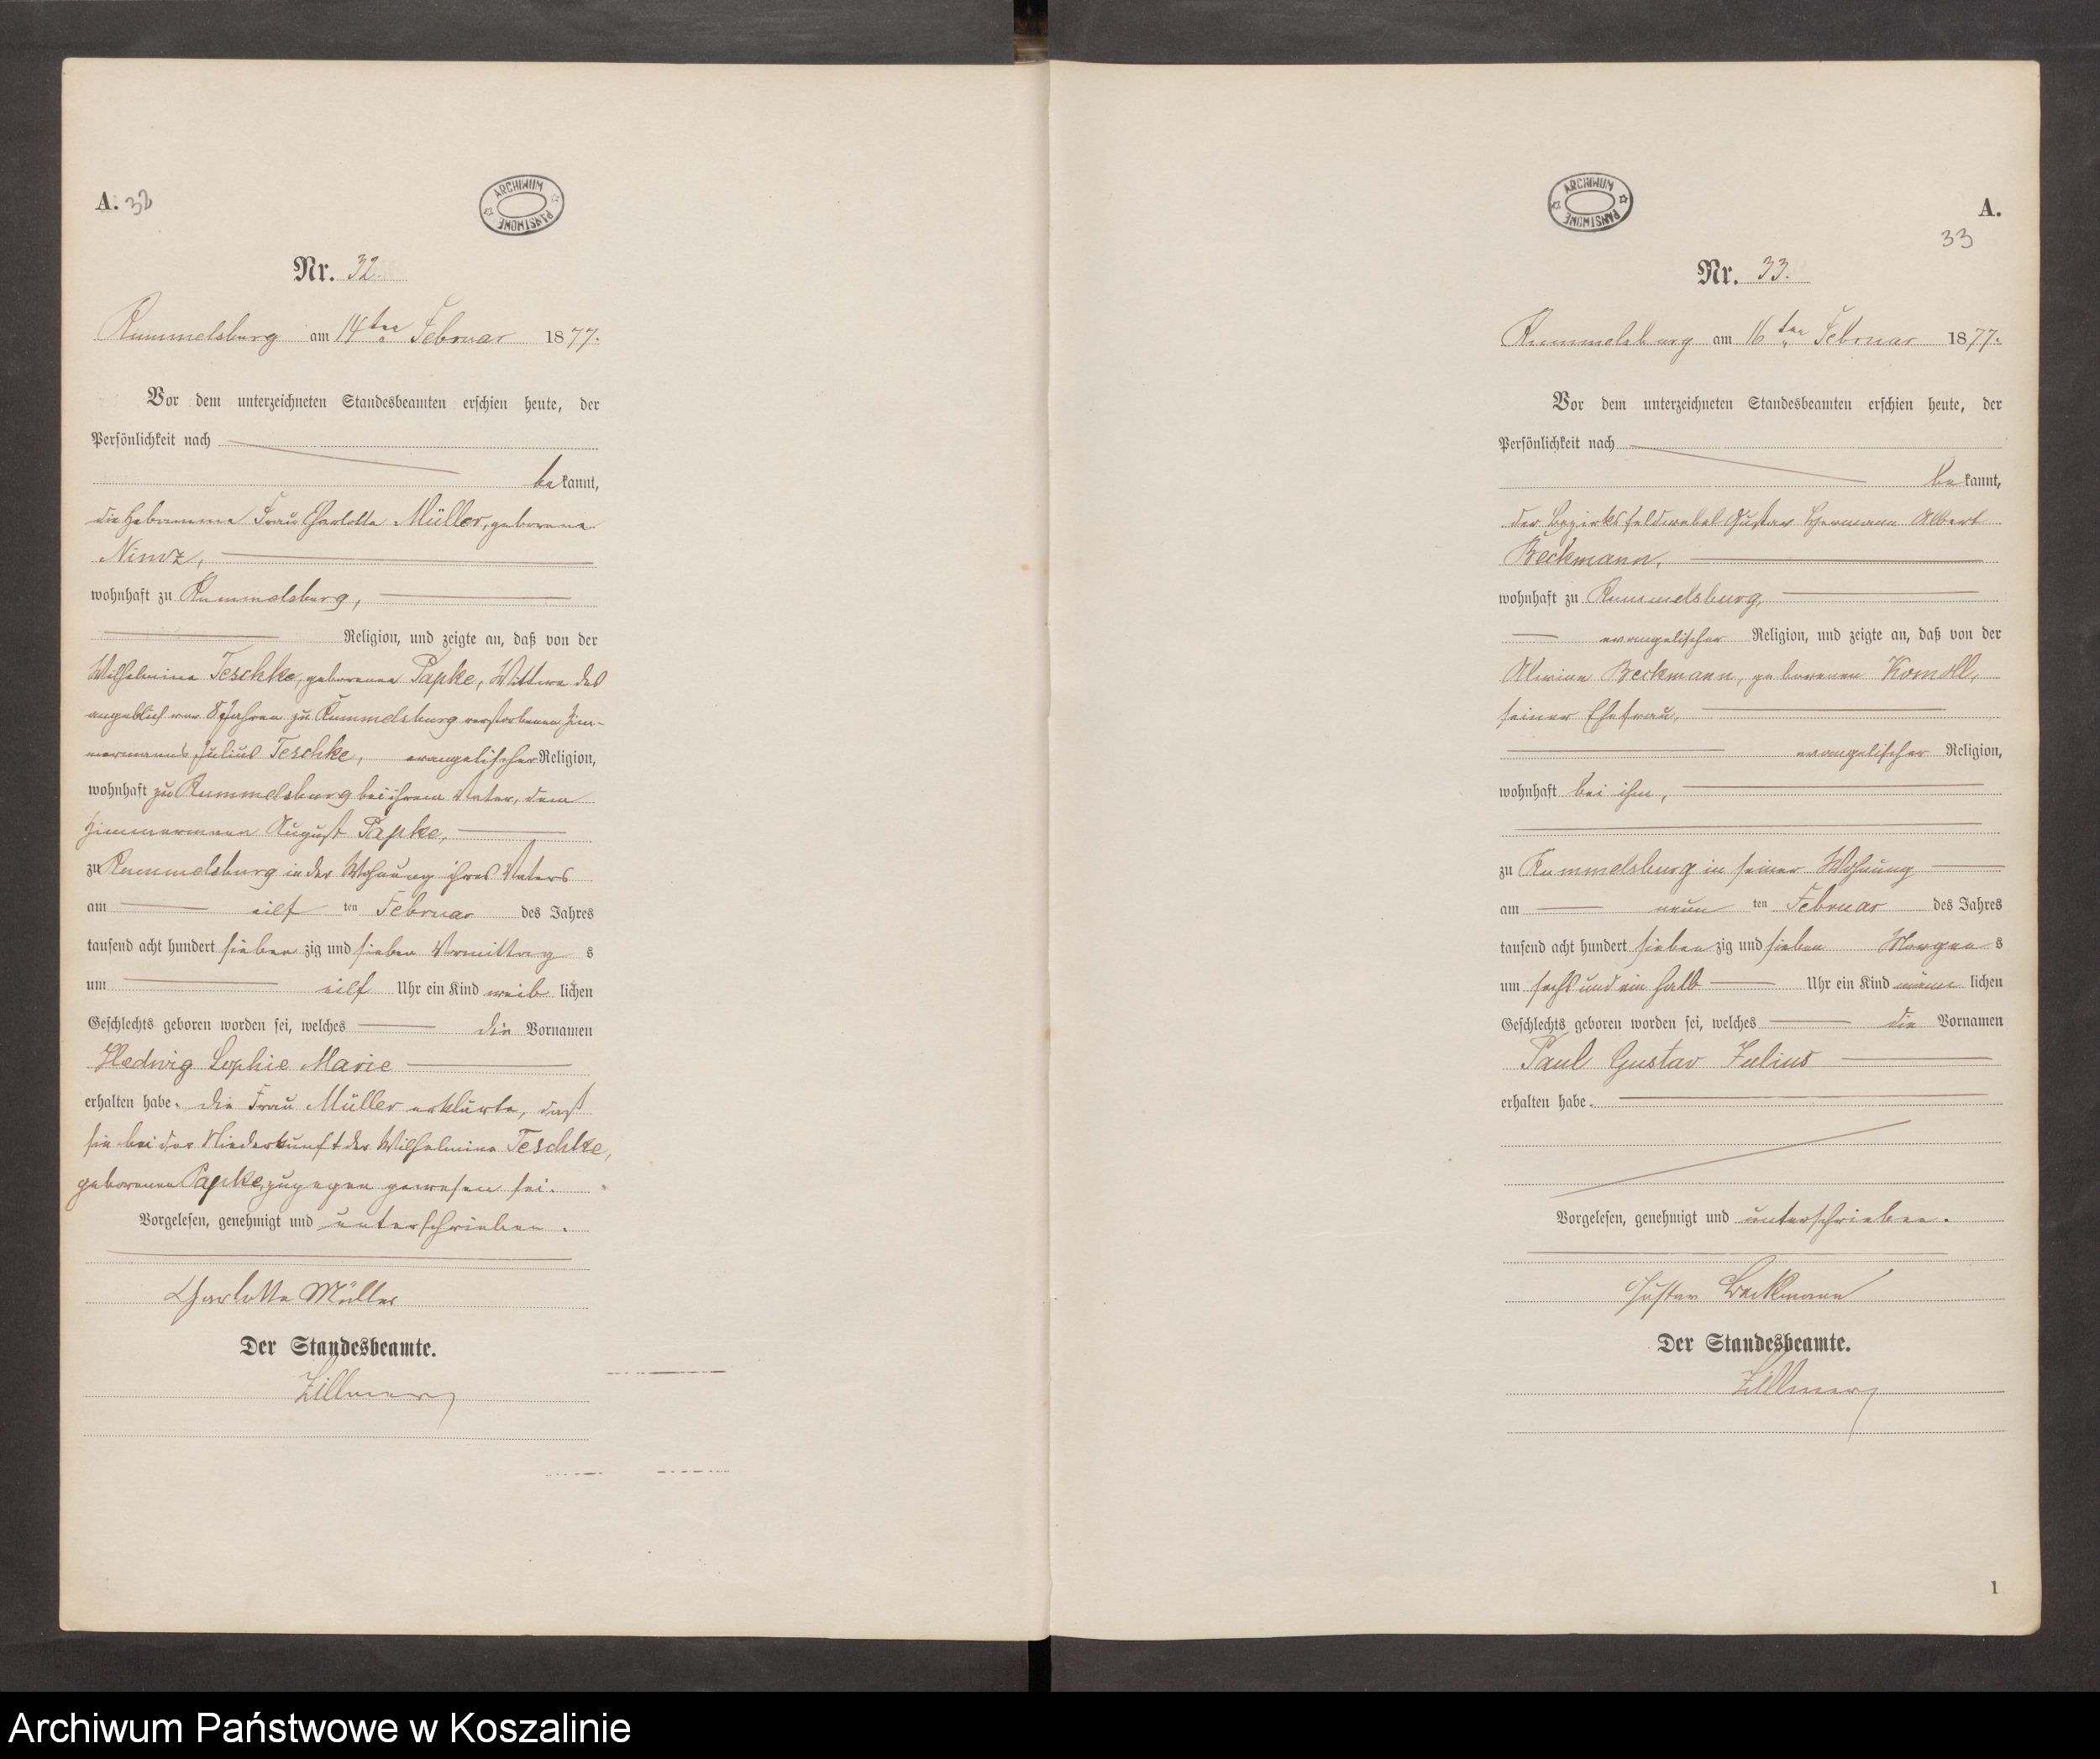 A. 32
ARCHIWUM PAŃSTWOWE
Nr. 32.
Rummelsburg am 14ten Februar 1877.
Vor dem unterzeichneten Standesbeamten erschien heute, der
Persönlichkeit nach
bekannt,
die Hebamme Frau Charlotte Müller, geborene
Nimz,
wohnhaft zu Rummelsburg,
Religion, und zeigte an, daß von der
Wilhelmine Teschke, geborenen Papke, Wittwe des
angeblich vor 8 Jahren zu Rummelsburg verstorbenen Zim-
mermanns Julius Teschke, evangelischer Religion,
wohnhaft zu Rummelsburg bei ihrem Vater, dem
Zimmermann August Papke,
zu Rummelsburg in der Wohnung ihres Vaters
am eilf ten Februar des Jahres
tausend acht hundert sieben zig und sieben Vormittag s
um eilf Uhr ein Kind weib lichen
Geschlechts geboren worden sei, welches die Vornamen
Hedwig Sophie Marie
erhalten habe. Die Frau Müller erklärte, daß
sie bei der Niederkunft der Wilhelmine Teschke,
geborenen Papke, zugegen gewesen sei.
Vorgelesen, genehmigt und unterschrieben.
Charlotte Müller
Der Standesbeamte.
Zillmer
ARCHIWUM PAŃSTWOWE
A.
33
Nr. 33.
Rummelsburg am 16ten Februar 1877.
Vor dem unterzeichneten Standesbeamten erschien heute, der
Persönlichkeit nach
bekannt,
der Bezirksfeldwebel Gustav Hermann Albert
Beckmann,
wohnhaft zu Rummelsburg,
evangelischer Religion, und zeigte an, daß von der
Alwine Beckmann, geborenen Komoll,
seiner Ehefrau,
evangelischer Religion,
wohnhaft bei ihm,
zu Rummelsburg in seiner Wohnung
am neun ten Februar des Jahres
tausend acht hundert sieben zig und sieben Morgen s
um sechs und ein halb Uhr ein Kind männ lichen
Geschlechts geboren worden sei, welches die Vornamen
Paul Gustav Julius
erhalten habe.
Vorgelesen, genehmigt und unterschrieben.
Gustav Beckmann
Der Standesbeamte.
Zillmer
1
Archiwum Państwowe w Koszalinie